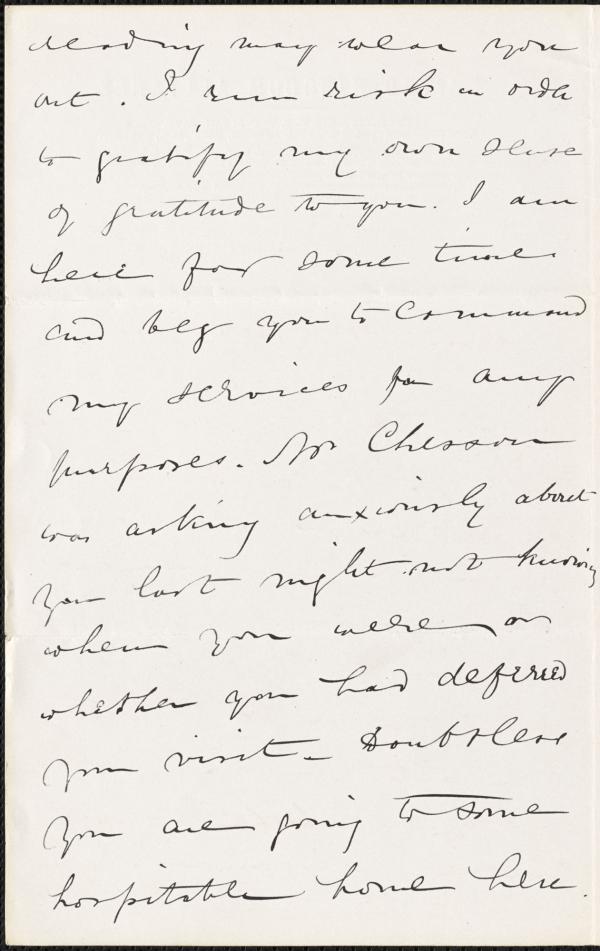 reading may wear you
out. I run risk in order
to gratify my own sense
of gratitude to you. I am
here for some time
and beg you to command
my services for any
purposes. Mr Chesson
was asking anxiously about
you last night not knowing
when you were or
whether you had deferred
your visit - Doubtless
you are going to some
hospitable home here.